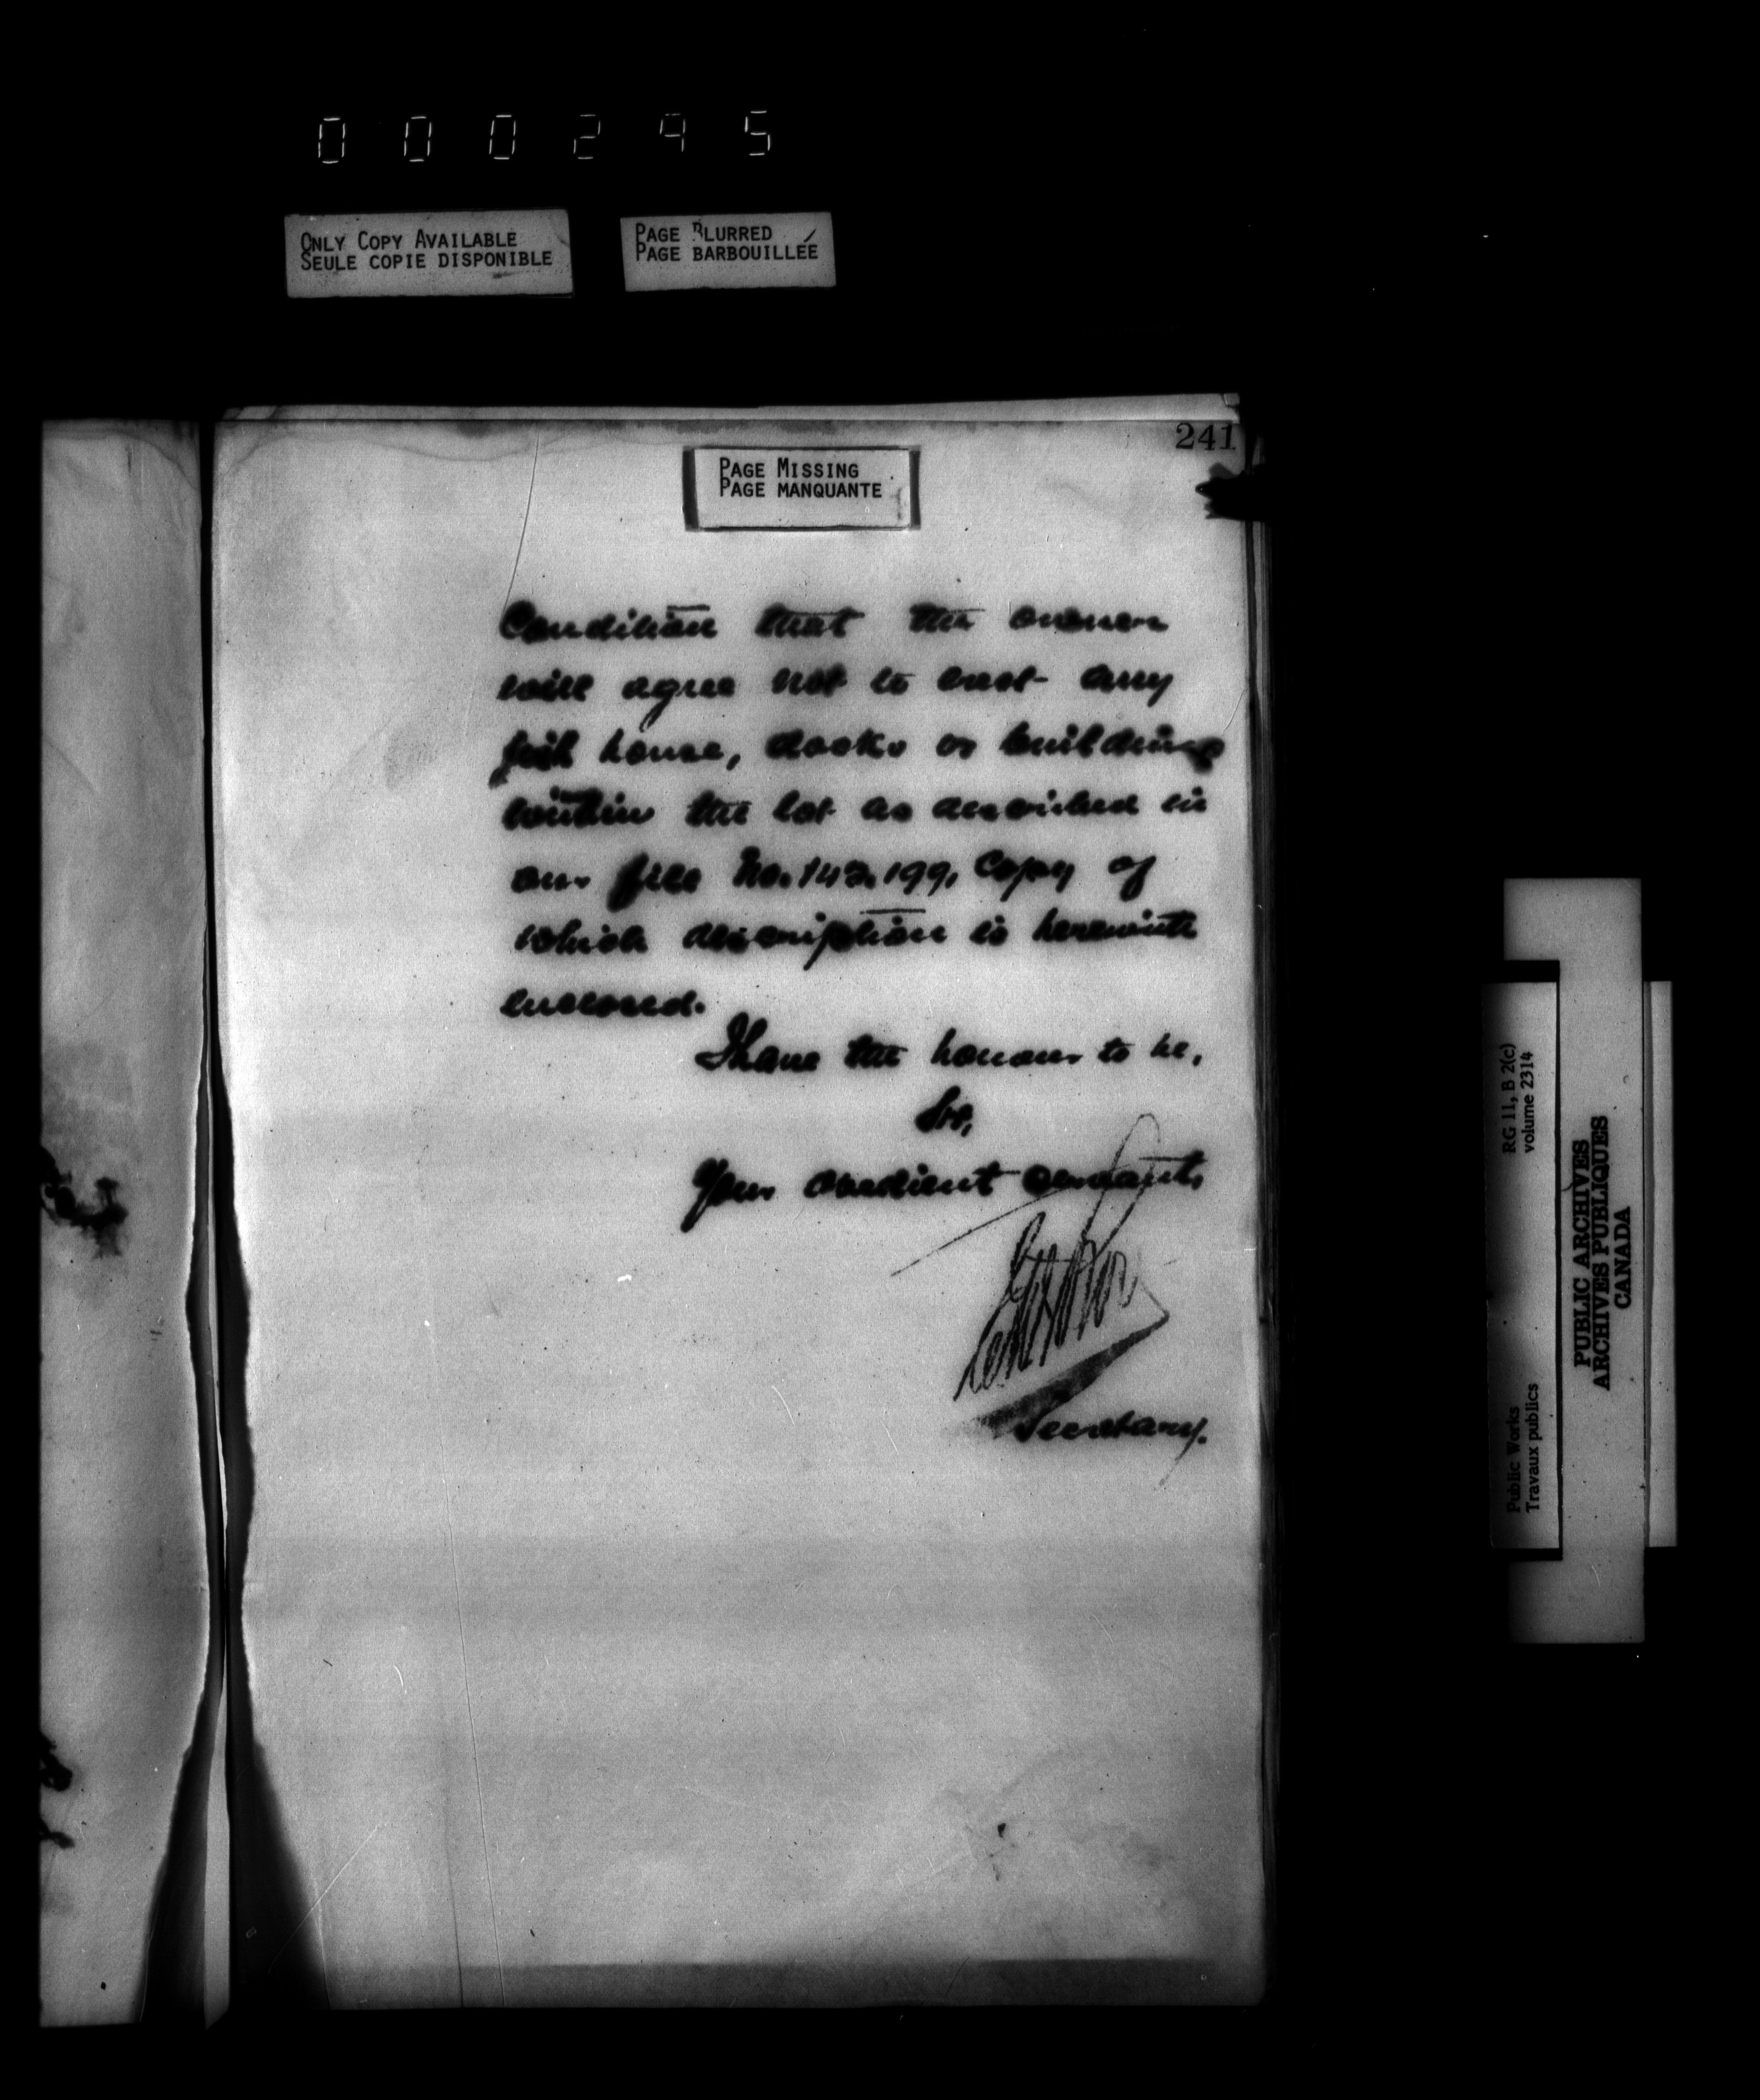 000295
ONLY COPY AVAILABLE
SEULE COPIE DISPONIBLE
PAGE BLURRED
PAGE BARBOUILLÉE
241
PAGE MISSING
PAGE MANQUANTE
Condition that the owner
will agree not to erect any
fish house, docks or buildings
within the lot as described in
our file No. 143.199, Copy of
which description is herewith
enclosed.
I have the honour to be,
Sir,
Your obedient servant,
Secretary.
RG 11, B 2(c)
volume 2314
Public Works
Travaux publics
PUBLIC ARCHIVES
ARCHIVES PUBLIQUES
CANADA